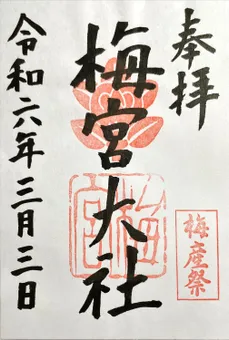 奉拝
梅宮大社
梅宮
梅産祭
令和六年三月三日